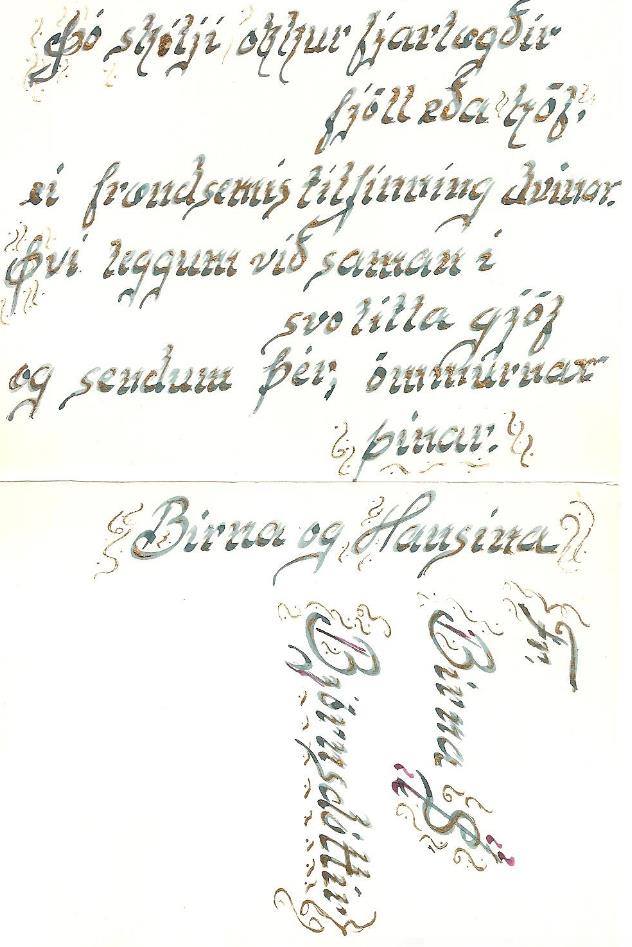 Þó skilji okkur fjarlægðir
fjöll eða höf,
ei frændsemis tilfinning dvínar.
Því leggjum við saman í
svo litla gjöf
og sendum þér, ömmurnar
þínar.
Birna og Hansína
Frú
Birna G.
Björnsdóttir